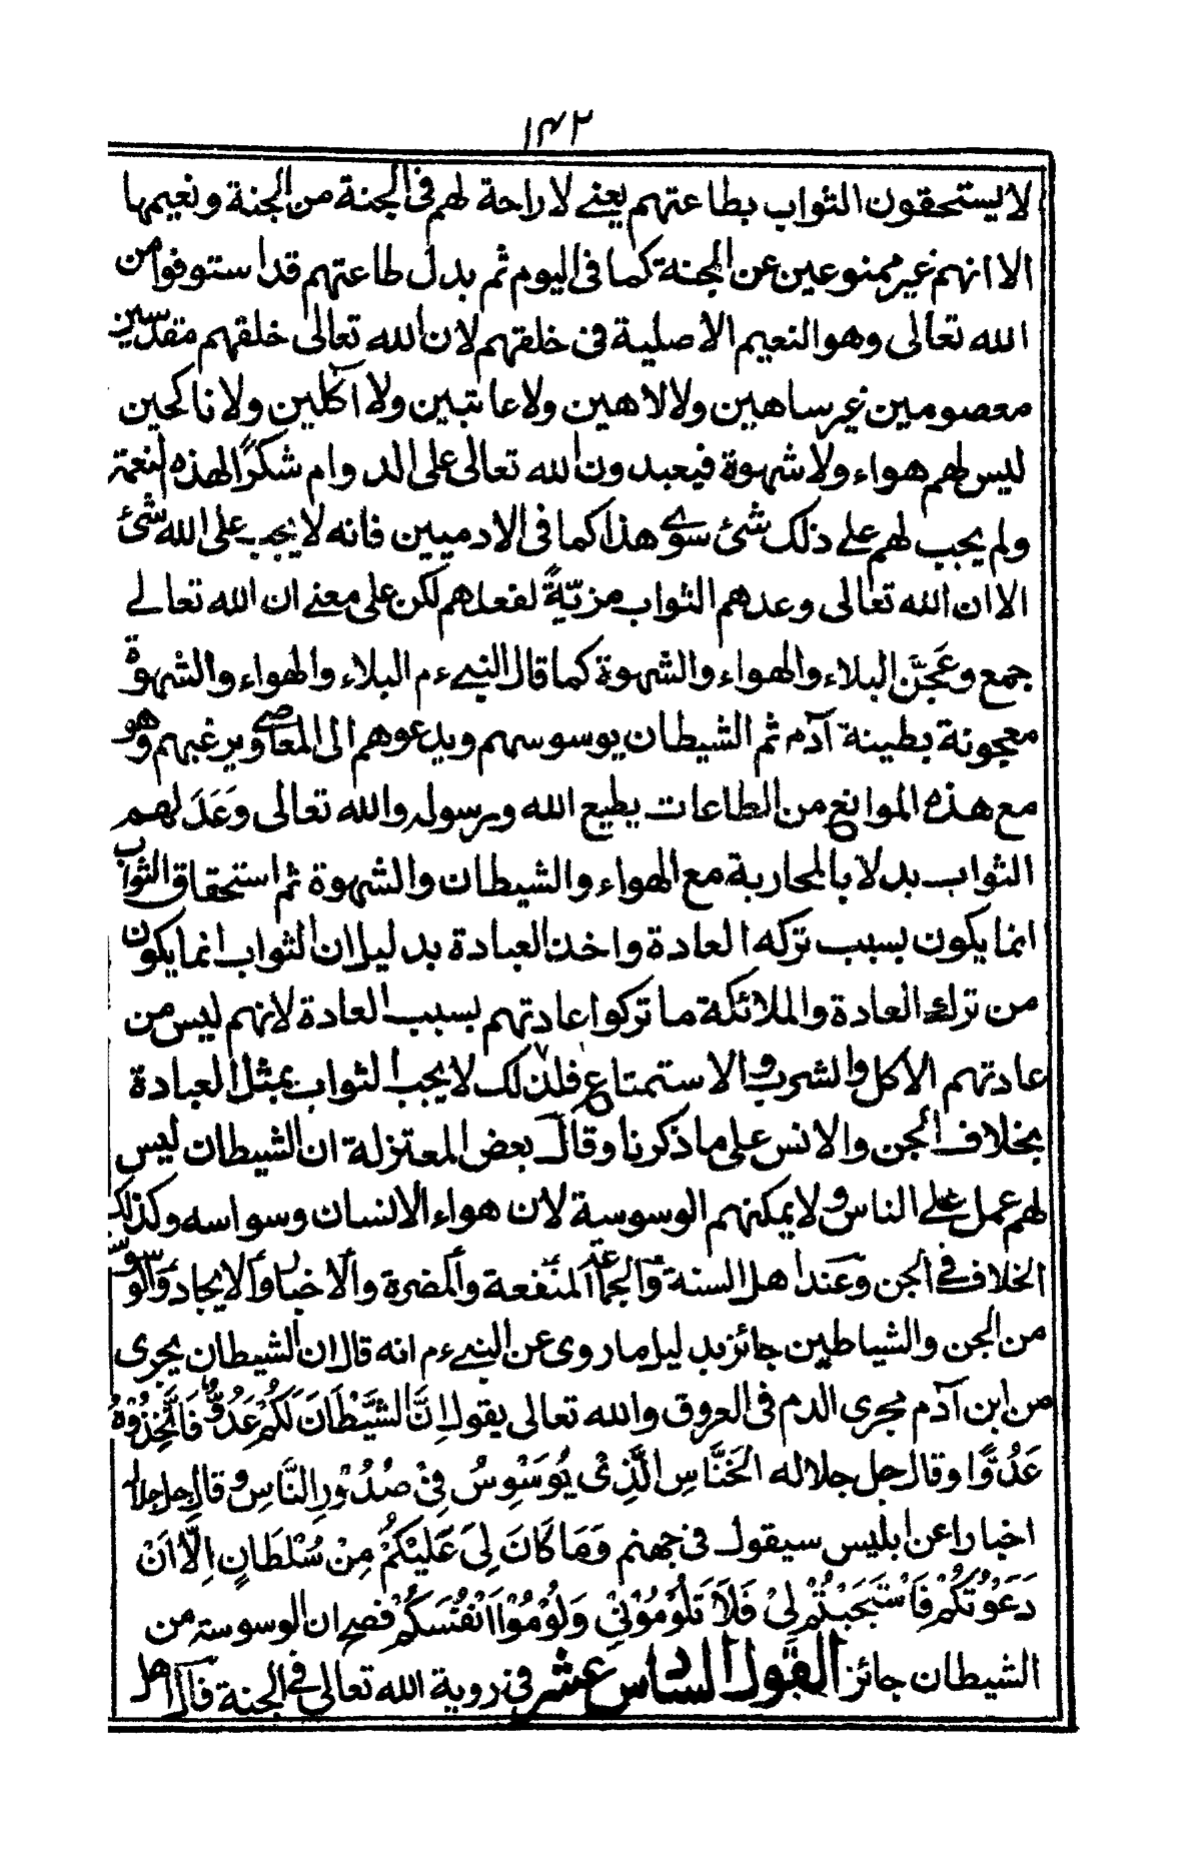 ١٤٢
لا يستحقون الثواب بطاعتهم يعنے لا راحة لهم فى الجنة من الجنة ونعيمها
الا انهم غير ممنوعين عن الجنة كما فى اليوم ثم بدل طاعتهم قد استوفوا من
الله تعالى وهو النعيم الاصلية فى خلقتهم لان الله تعالى خلقهم مقدسين
معصومين غير ساهين ولا لاهين ولا عائبين ولا آكلين ولا ناكحين
ليس لهم هواء ولا شهوة فيعبدون الله تعالى على الدوام شكرًا لهذه النعمة
ولم يجب لهم علے ذلك شئ سوے هذا كما فى الادميين فانه لا يجب على الله شئ
الا ان الله تعالى وعدهم الثواب مزيّةً لفعلهم لكن على معنے ان الله تعالے
جمع وعَجَّنَ البلاء والهواء والشهوة كما قال النبےءم البلاء والهواء والشهوة
معجونة بطينة آدم ثم الشيطان يوسوسهم ويدعوهم الى المعاصے ويرغبهم وهو
مع هذه الموانع من الطاعات يطيع الله ورسوله والله تعالى وَعَدَ لهم
الثواب بدلا بالمحاربة مع الهواء والشيطان والشهوة ثم استحقاق الثواب
انما يكون بسبب تركه العادة واخذ العبادة بدليل ان الثواب انما يكون
من ترك العادة والملائكة ما تركوا عادتهم بسبب العادة لانهم ليس من
عادتهم الاكل والشرب والاستمتاع فلذلك لا يجب الثواب بمثل العبادة
بخلاف الجن والانس على ما ذكرنا وقال بعض المعتزلة ان الشيطان ليس
لهم عمل علے الناس ولا يمكنهم الوسوسة لان هواء الانسان وسواسه وكذلك
الخلاف فے الجن وعند اهل السنة والجماعة المنفعة والمضرة والاخبار والايجاد والوسوسة
من الجن والشياطين جائز بدليل ما روى عن النبےءم انه قال ان الشيطان يجرى
من ابن آدم مجرى الدم فى العروق والله تعالى يقول اِنَّ الشَّيْطَانَ لَكُمْ عَدُوٌّ فَاتَّخِذُوْهُ
عَدُوًّا وقال جل جلاله الخَنَّاسِ الَّذِىْ يُوَسْوِسُ فِىْ صُدُوْرِ النَّاسِ وقال جل جلاله
اخبارا عن ابليس سيقول فى جهنم وَمَا كَانَ لِىَ عَلَيْكُمْ مِنْ سُلْطَانٍ اِلَّا اَنْ
دَعَوْتُكُمْ فَاسْتَجَبْتُمْ لِىْ فَلَا تَلُوْمُوْنِىْ وَلُوْمُوْا اَنْفُسَكُمْ فصح ان الوسوسة من
الشيطان جائز القول السادس عشر فى روية الله تعالى فے الجنة قال اهل